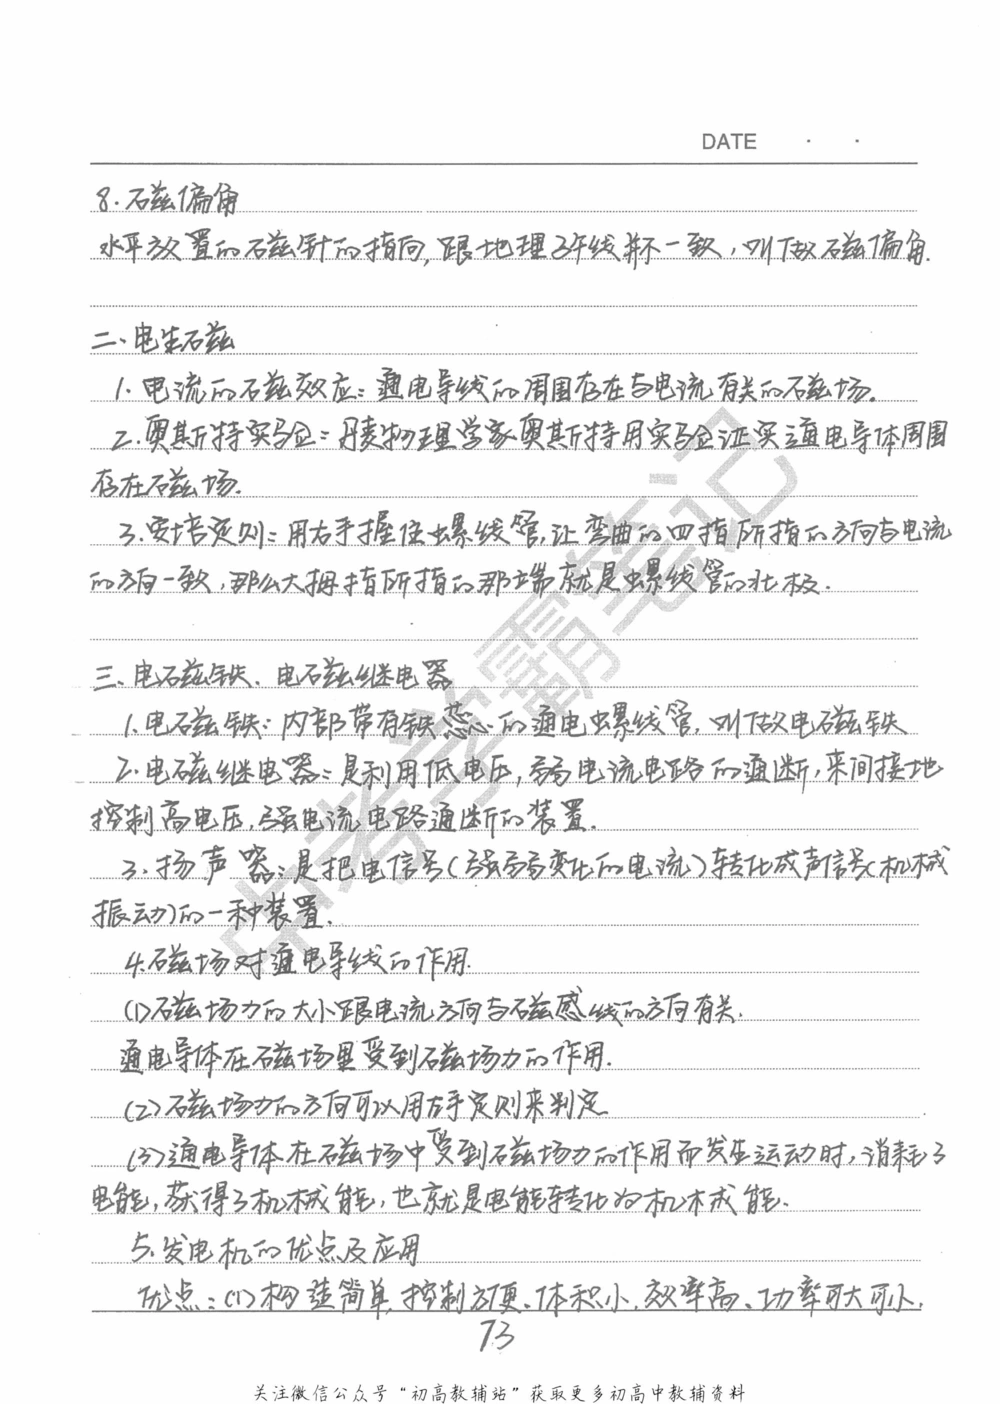 DATE · ·
8.磁偏角
水平放置的磁针的指向,跟地理子午线并不一致,叫做磁偏角.
二、电生磁
1.电流的磁效应:通电导线的周围存在与电流有关的磁场.
2.奥斯特实验:丹麦物理学家奥斯特用实验证实通电导体周围
存在磁场.
3.安培定则:用右手握住螺线管,让弯曲的四指所指的方向与电流
的方向一致,那么大拇指所指的那端就是螺线管的北极.
三、电磁铁、电磁继电器
1.电磁铁:内部带有铁芯的通电螺线管,叫做电磁铁
2.电磁继电器:是利用低电压,弱电流电路的通断,来间接地
控制高电压,强电流电路通断的装置.
3.扬声器:是把电信号(强弱变化的电流)转化成声信号(机械
振动)的一种装置.
4.磁场对通电导线的作用.
(1)磁场力的大小跟电流方向与磁感线的方向有关.
通电导体在磁场里受到磁场力的作用.
(2)磁场力的方向可以用左手定则来判定.
(3)通电导体在磁场中受到磁场力的作用而发生运动时,消耗了
电能,获得了机械能,也就是电能转化为机械能.
5.发电机的优点及应用
优点:(1)构造简单,控制方便、体积小、效率高、功率可大可小.
73
中考学霸笔记
关注微信公众号“初高教辅站”获取更多初高中教辅资料